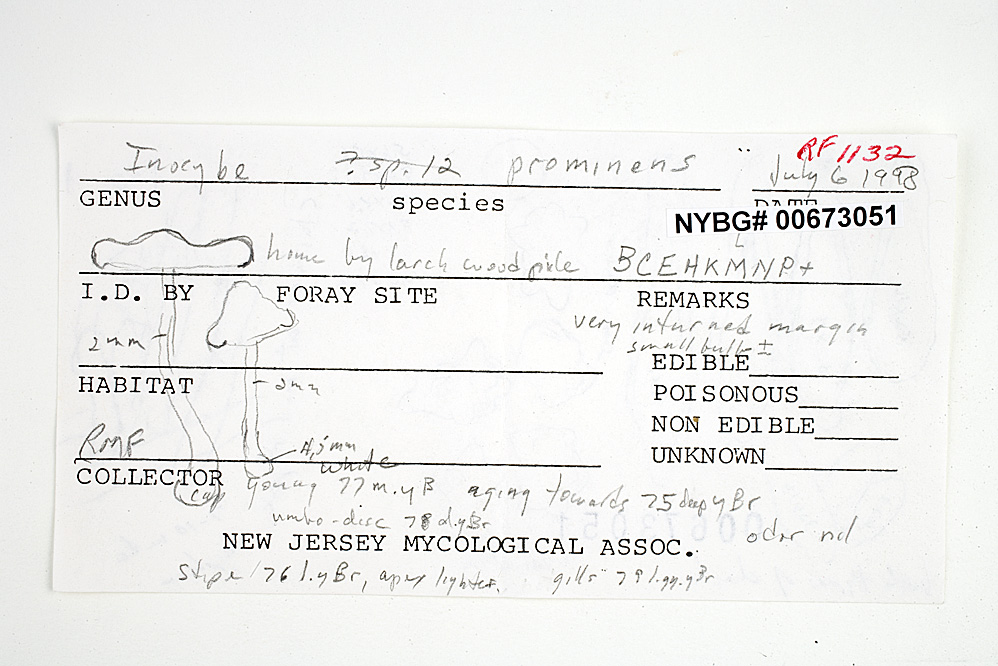 RF 1132
Inocybe ? sp. 12 prominens July 6 1998
GENUS species DATE
NYBG# 00673051
home by larch woodpile BCEHKMNP+
L
I.D. BY FORAY SITE REMARKS
very inturned margin
2mm small bulb ±
EDIBLE
HABITAT 2mm
POISONOUS
NON EDIBLE
RMF 4,5mm
white
UNKNOWN
COLLECTOR
cap young 77 m.yB aging towards 75 deep yBr
umbo-disc 78 d.yBr
odor nd
NEW JERSEY MYCOLOGICAL ASSOC.
stipe 76 l.yBr, apex lighter. gills 79 l.gy.yBr